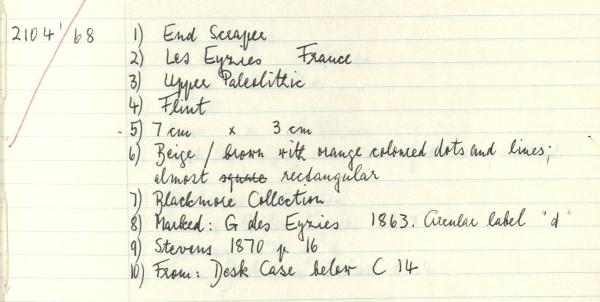 2104'68 1) End Scraper
2) Les Eyzies France
3) Upper Paleolithic
4) Flint
5) 7 cm x 3 cm
6) Beige / brown with orange coloured dots and lines;
almost square rectangular
7) Blackmore Collection
8) Marked: G des Eyzies 1863. Circular label "d"
9) Stevens 1870 p. 16
10) From: Desk Case below C 14